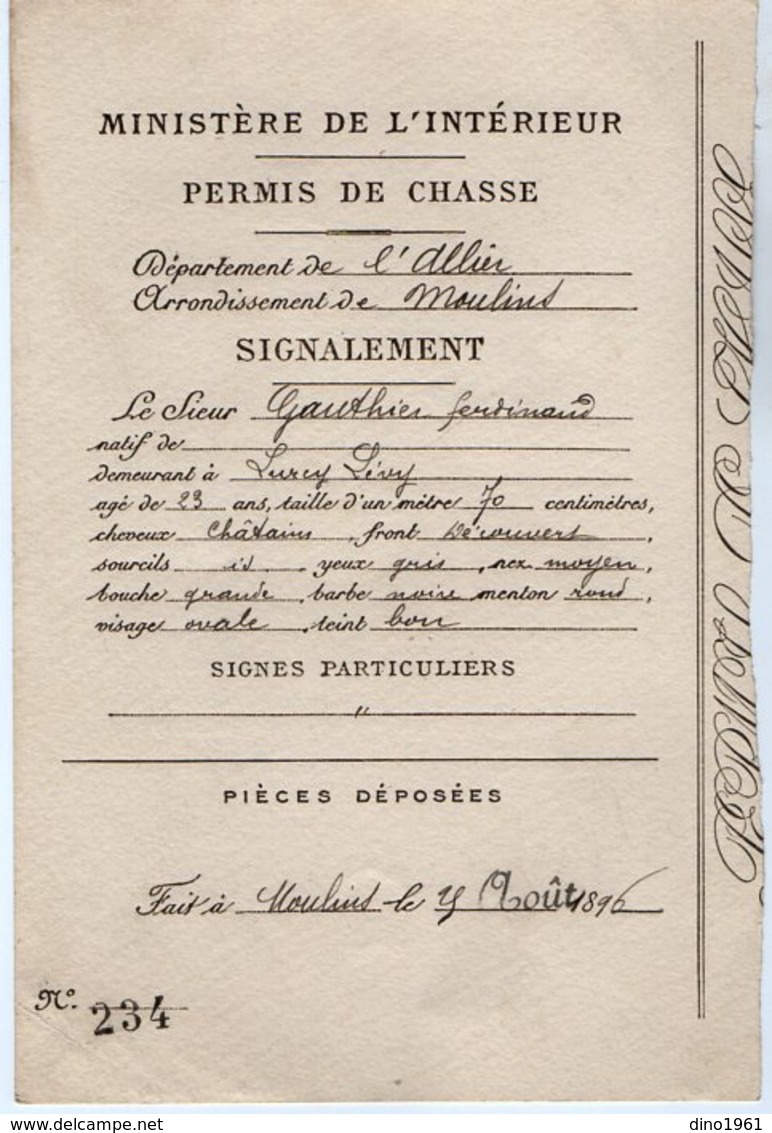 MINISTÈRE DE L'INTÉRIEUR
PERMIS DE CHASSE
Département de l'Allier
Arrondissement de Moulins
SIGNALEMENT
Le Sieur Gauthier ferdinand
natif de
demeurant à Lurcy Lévy
agé de 23 ans, taille d'un mètre 70 centimètres,
cheveux Châtains, front Découvert,
sourcils id, yeux gris, nez moyen,
bouche grande, barbe noire menton rond,
visage ovale, teint bon
SIGNES PARTICULIERS
"
PIÈCES DÉPOSÉES
Fait à Moulins le Août 1896
N° 234
dino1961